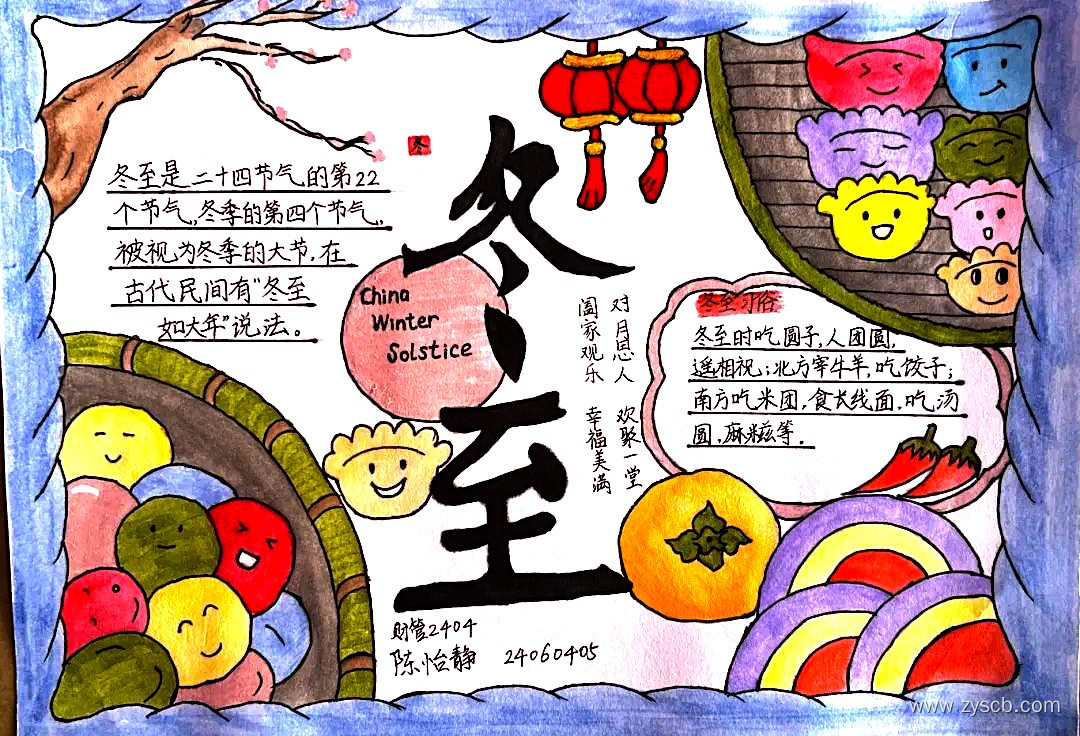 冬
冬至
冬至是二十四节气的第22
个节气,冬季的第四个节气,
被视为冬季的大节,在
古代民间有“冬至
如大年”说法。
China
Winter
Solstice
对月思人
阖家观乐
欢聚一堂
幸福美满
冬至习俗
冬至时吃圆子,人团圆,
遥相祝;北方宰牛羊,吃饺子;
南方吃米团,食长线面,吃汤
圆,麻糍等.
财管2404
陈怡静 24060405
www.zyscb.com